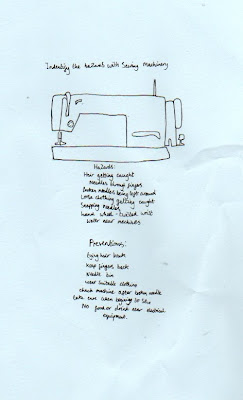 Indentify the hazards with Sewing Machinery
Hazards:
Hair getting caught
Needles through fingers
Broken needles being left around
Loose clothing getting caught
Snapping needles
hand wheel - twisted wrist
Water near machines
Preventions:
tying hair back
keep fingers back
Needle bin
wear suitable clothing
check machine after broken needle
take care when begining to sew
No food or drink near electrical
equipment.